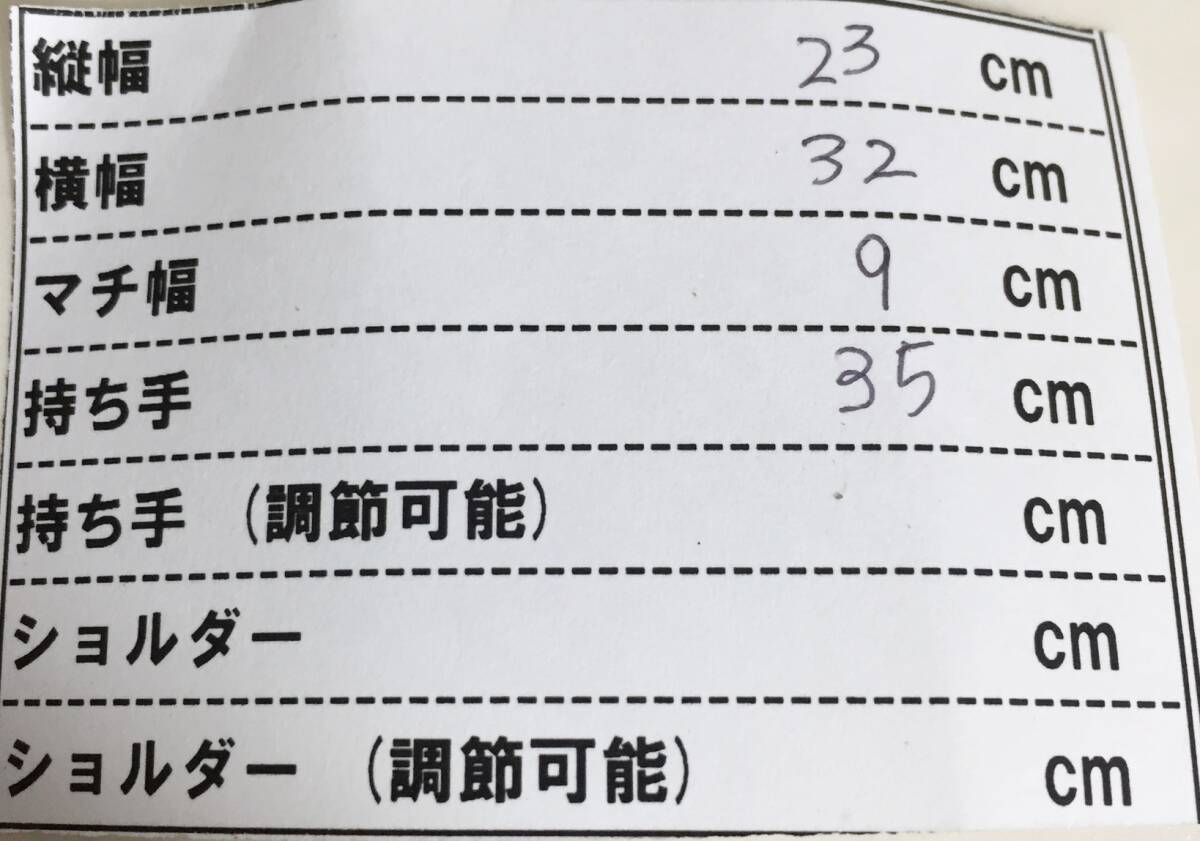 縦幅 23 cm
横幅 32 cm
マチ幅 9 cm
持ち手 35 cm
持ち手 (調節可能) cm
ショルダー cm
ショルダー (調節可能) cm